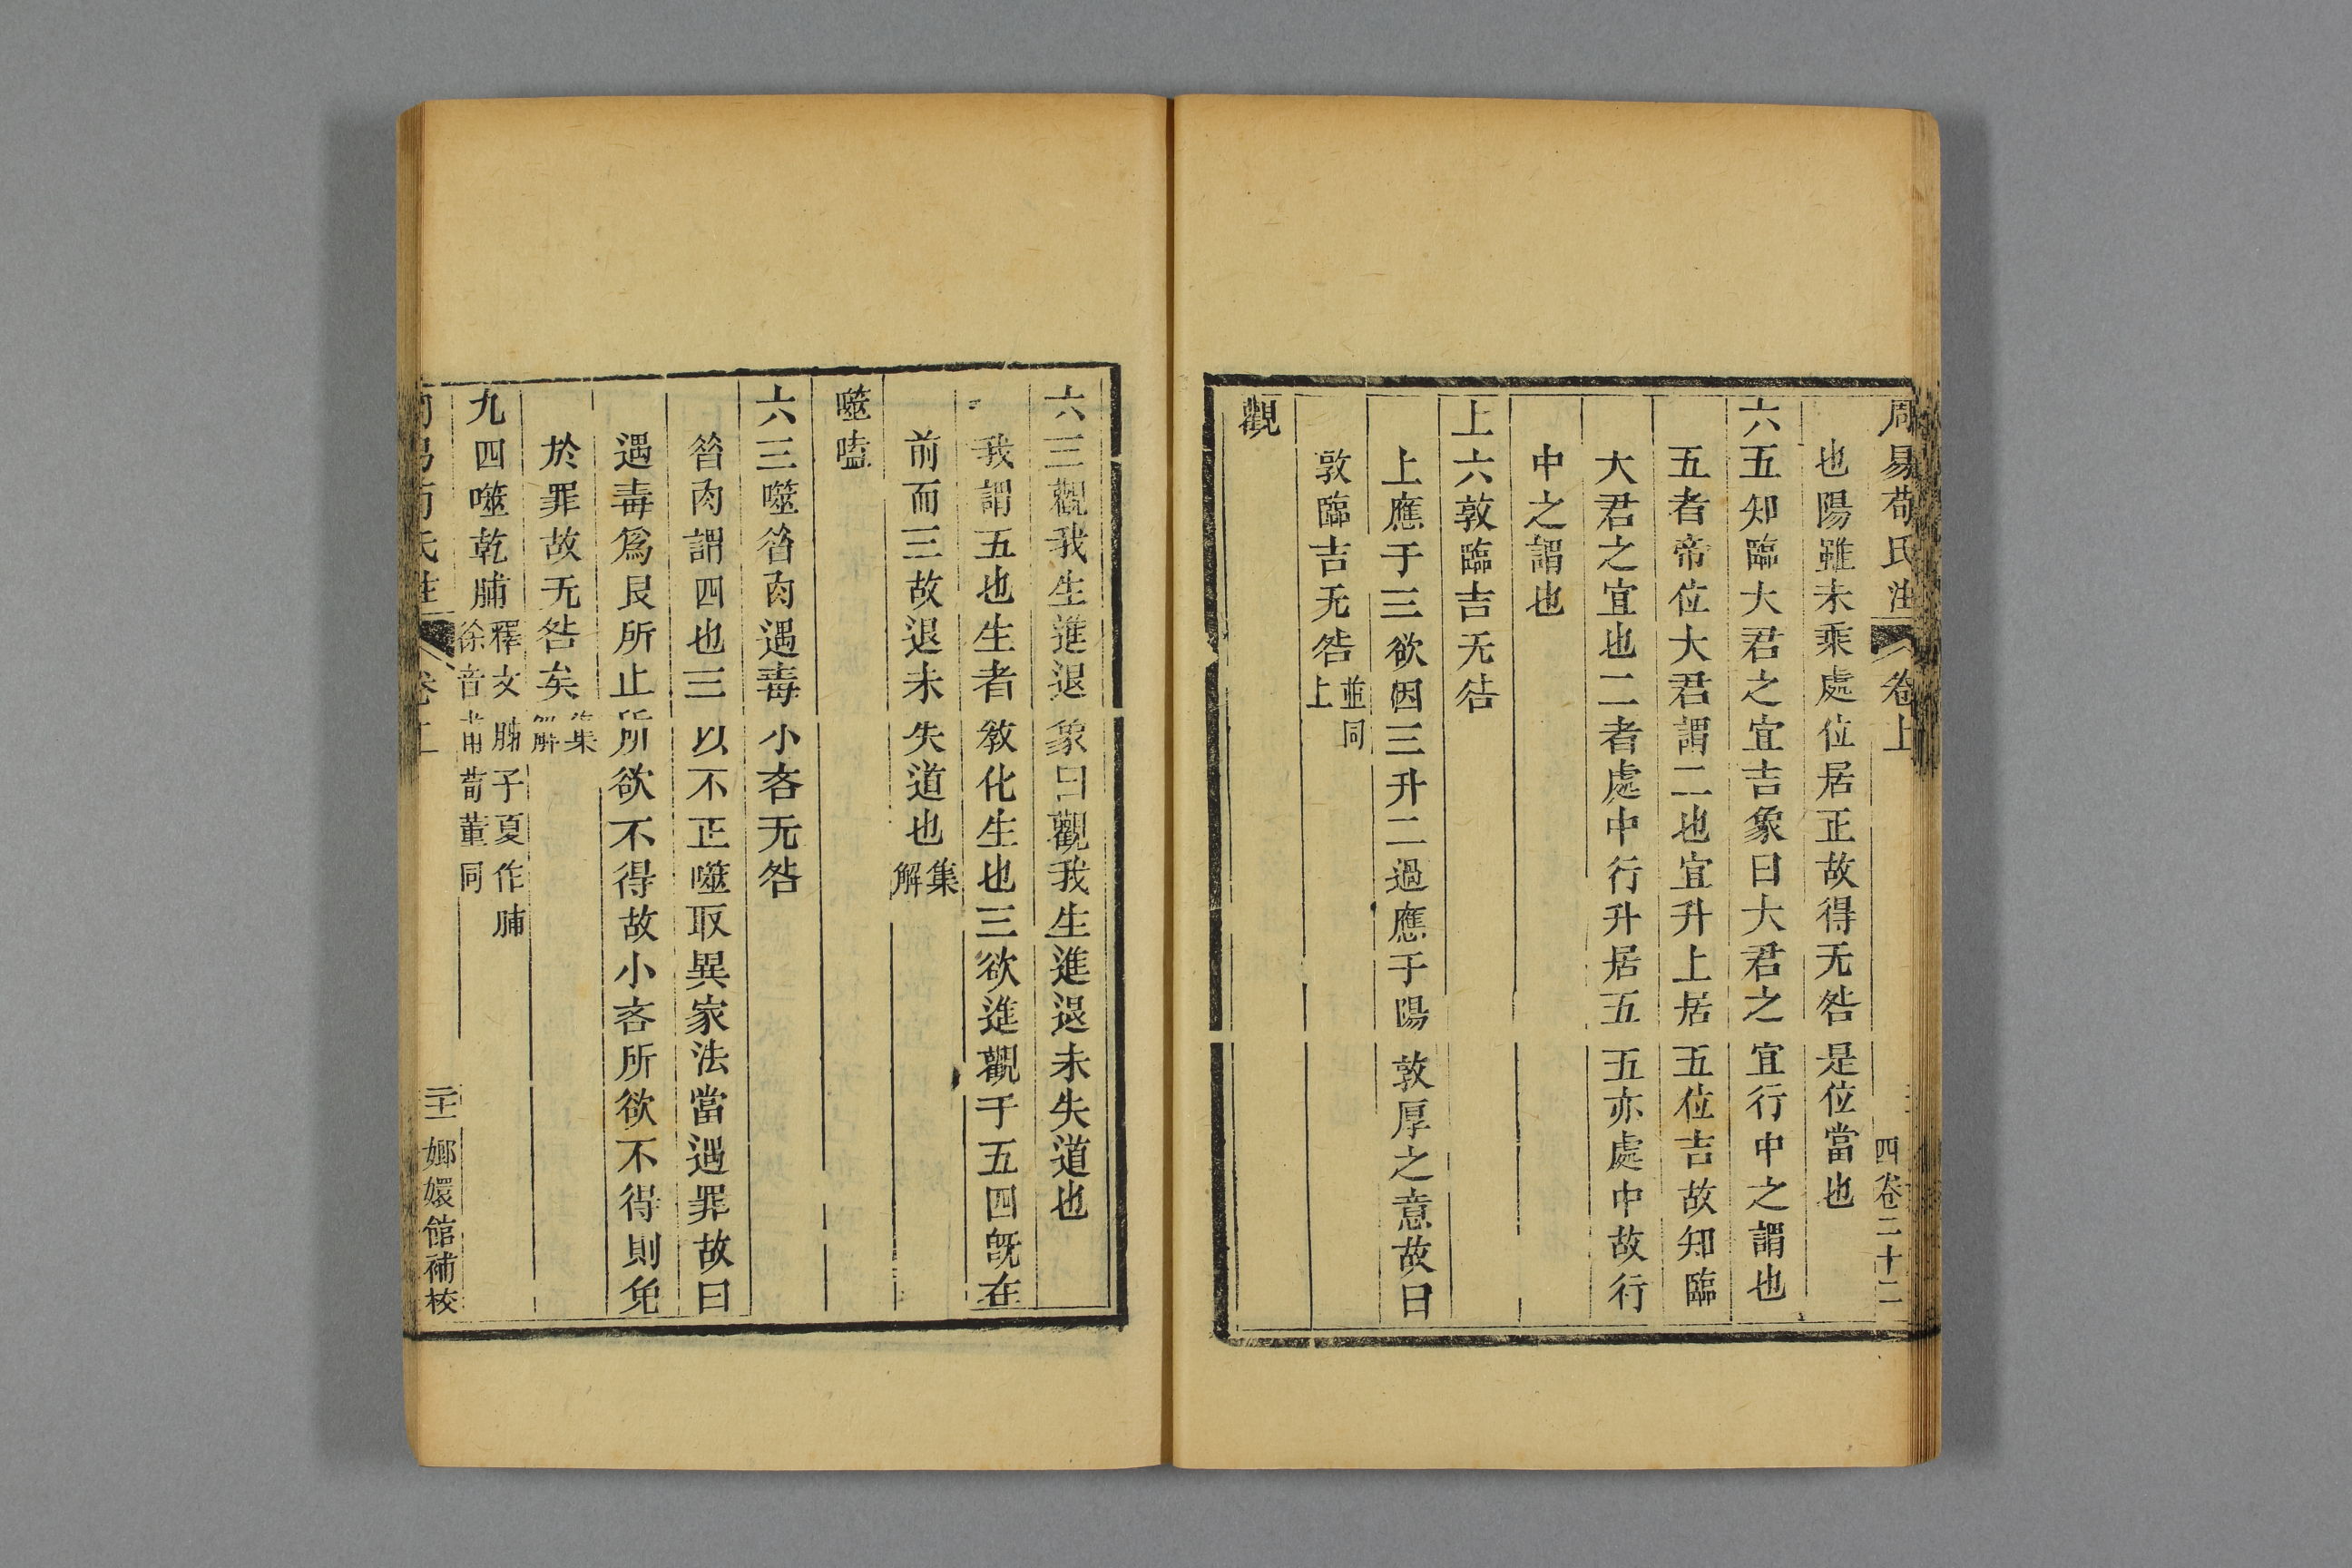 周易荀氏注 卷上 四卷二十二
也陽雖未乘處位居正故得无咎是位當也
六五知臨大君之宜吉象曰大君之宜行中之謂也
五者帝位大君謂二也宜升上居五位吉故知臨
大君之宜也二者處中行升居五五亦處中故行
中之謂也
上六敦臨吉无咎
上應于三欲因三升二過應于陽敦厚之意故曰
敦臨吉无咎並同上
觀
六三觀我生進退象曰觀我生進退未失道也
我謂五也生者教化生也三欲進觀于五四旣在
前而三故退未失道也集解
噬嗑
六三噬㫺肉遇毒小吝无咎
㫺肉謂四也三以不正噬取異家法當遇罪故曰
遇毒爲艮所止所欲不得故小吝所欲不得則免
於罪故无咎矣集解
九四噬乾脯釋文胏子夏作脯徐音甫荀董同
氏注 卷上 二十一 嫏嬛館補校